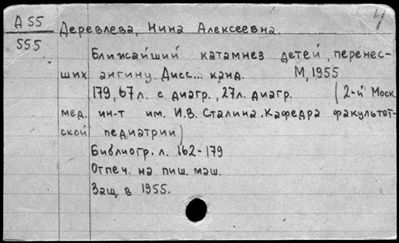 А 55
555
4
Деревлева, Нина Алексеевна.
Ближайший катамнез детей, перенес-
ших ангину. Дисс... канд. М, 1955
179, 67 л. с диагр., 27 л. диагр. (2-й Моск.
мед. ин-т им. И.В. Сталина. Кафедра факультет-
ской педиатрии)
Библиогр. л. 162-179
Отпеч. на пиш. маш.
Защ. в 1955.